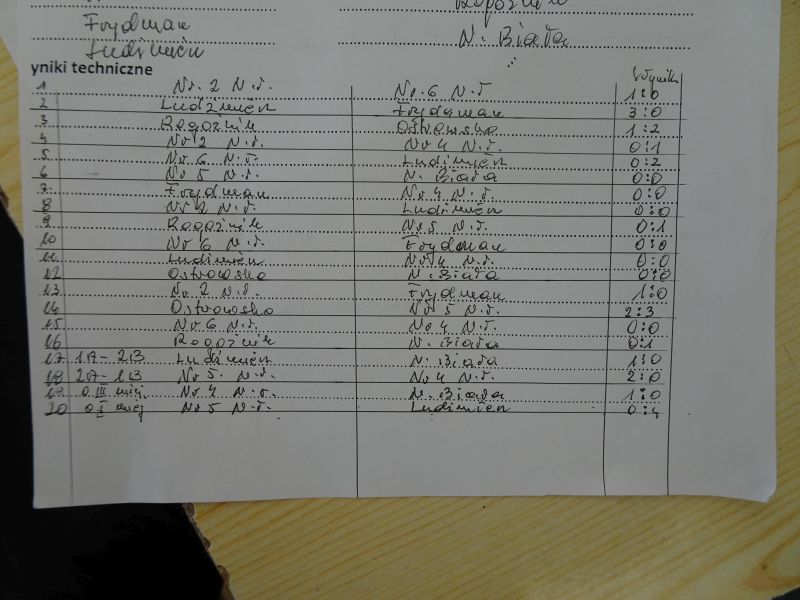 Frydman
Ludźmierz N. Biała
yniki techniczne Wyniki
1 Nr. 2 N.T. Nr. 6 N.T 1:0
2 Ludźmierz Frydman 3:0
3 Rogoźnik Ostrowsko 1:2
4 Nr 2 N.T. Nr 4 N.T. 0:1
5 Nr. 6 N.T. Ludźmierz 0:2
6 Nr 5 N.T. N. Biała 0:0
7 Frydman Nr 4 N.T. 0:0
8 Nr 2 N.T. Ludźmierz 0:0
9 Rogoźnik Nr 5 N.T. 0:1
10 Nr 6 N.T. Frydman 0:0
11 Ludźmierz Nr 4 N.T. 0:0
12 Ostrowsko N. Biała 0:0
13 Nr. 2 N.T. Frydman 1:0
14 Ostrowsko Nr 5 N.T. 2:3
15 Nr. 6 N.T. Nr 4 N.T. 0:0
16 Rogoźnik N. Biała 0:1
17 1A-2B Ludźmierz N. Biała 1:0
18 2A-1B Nr 5. N.T. Nr 4 N.T. 2:0
19 o III miej. Nr 4 N.T. N. Biała 1:0
20 o I miej Nr 5 N.T. Ludźmierz 0:4